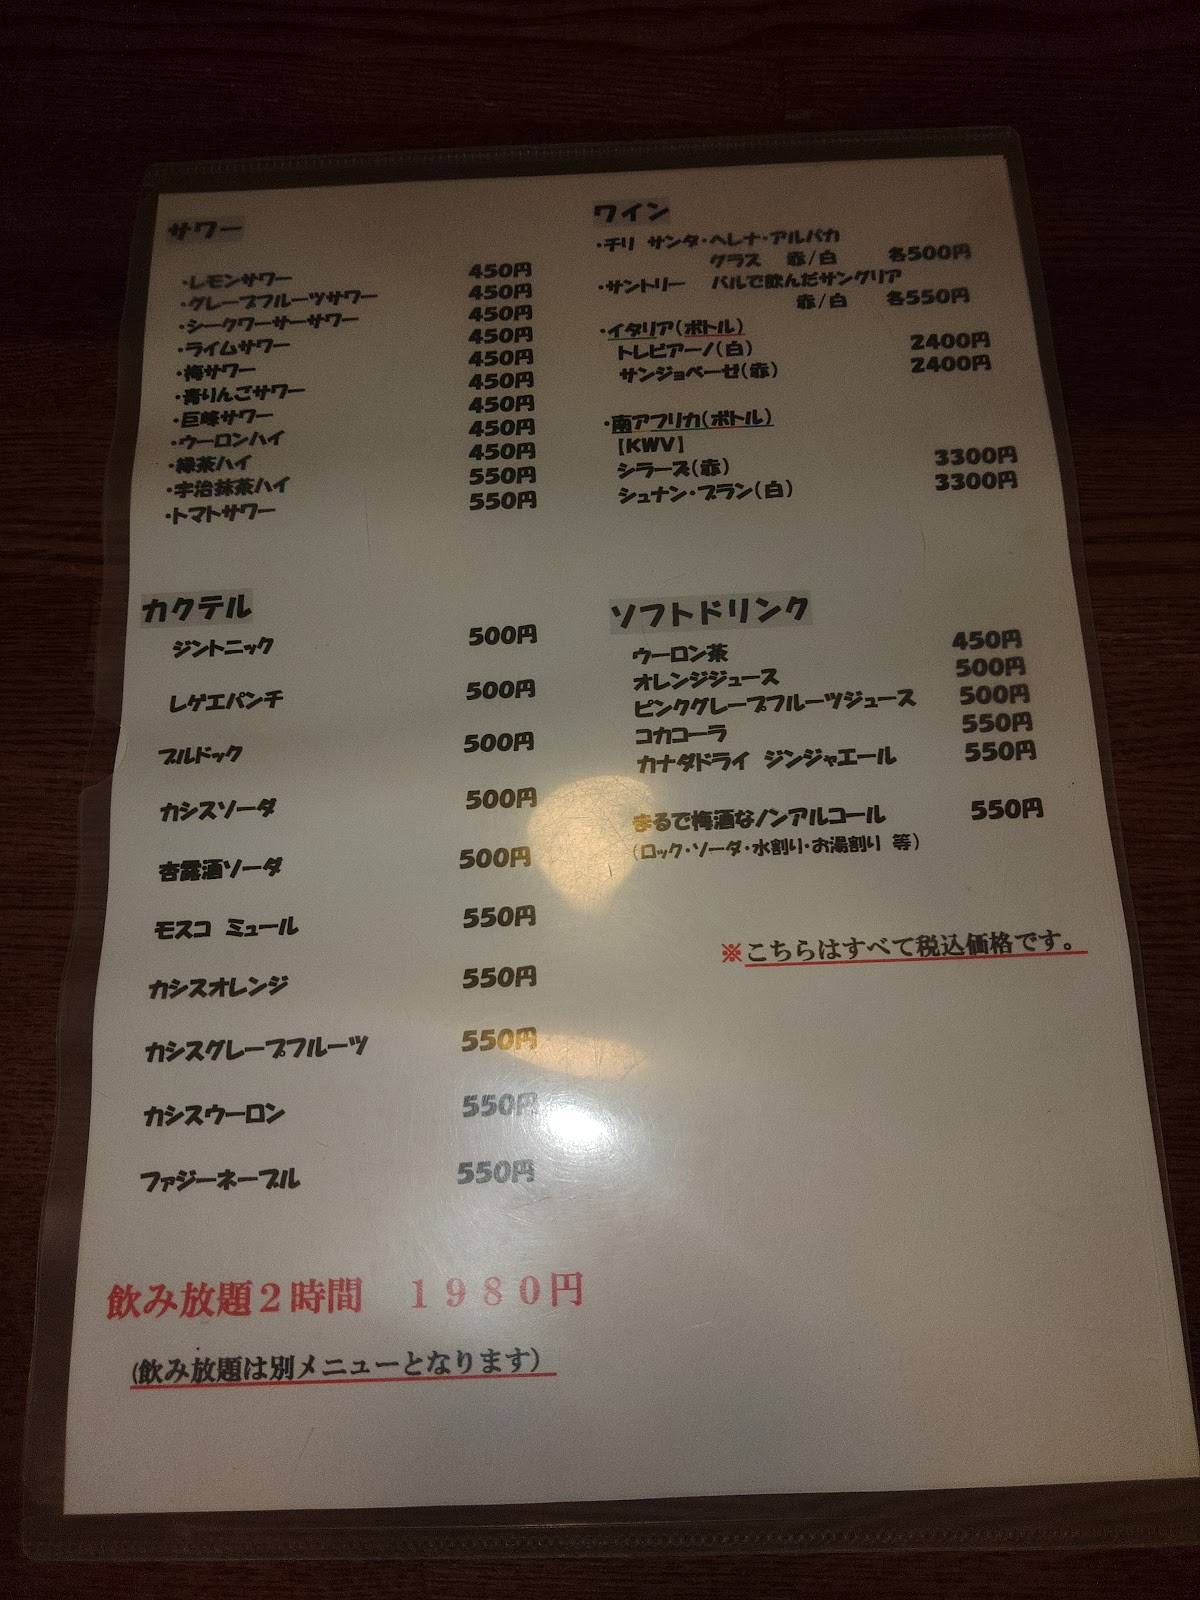 サワー
・レモンサワー 450円
・グレープフルーツサワー 450円
・シークワーサーサワー 450円
・ライムサワー 450円
・梅サワー 450円
・青りんごサワー 450円
・巨峰サワー 450円
・ウーロンハイ 450円
・緑茶ハイ 450円
・宇治抹茶ハイ 550円
・トマトサワー 550円
カクテル
ジントニック 500円
レゲエパンチ 500円
ブルドック 500円
カシスソーダ 500円
杏露酒ソーダ 500円
モスコ ミュール 550円
カシスオレンジ 550円
カシスグレープフルーツ 550円
カシスウーロン 550円
ファジーネーブル 550円
飲み放題2時間 1980円
(飲み放題は別メニューとなります)
ワイン
・チリ サンタ・ヘレナ・アルパカ
グラス 赤/白 各500円
・サントリー バルで飲んだサングリア
赤/白 各550円
・イタリア(ボトル)
トレビアーノ(白) 2400円
サンジョベーゼ(赤) 2400円
・南アフリカ(ボトル)
【KWV】
シラーズ(赤) 3300円
シュナン・ブラン(白) 3300円
ソフトドリンク
ウーロン茶 450円
オレンジジュース 500円
ピンクグレープフルーツジュース 500円
コカコーラ 550円
カナダドライ ジンジャエール 550円
まるで梅酒なノンアルコール 550円
(ロック・ソーダ・水割り・お湯割り 等)
※こちらはすべて税込価格です。